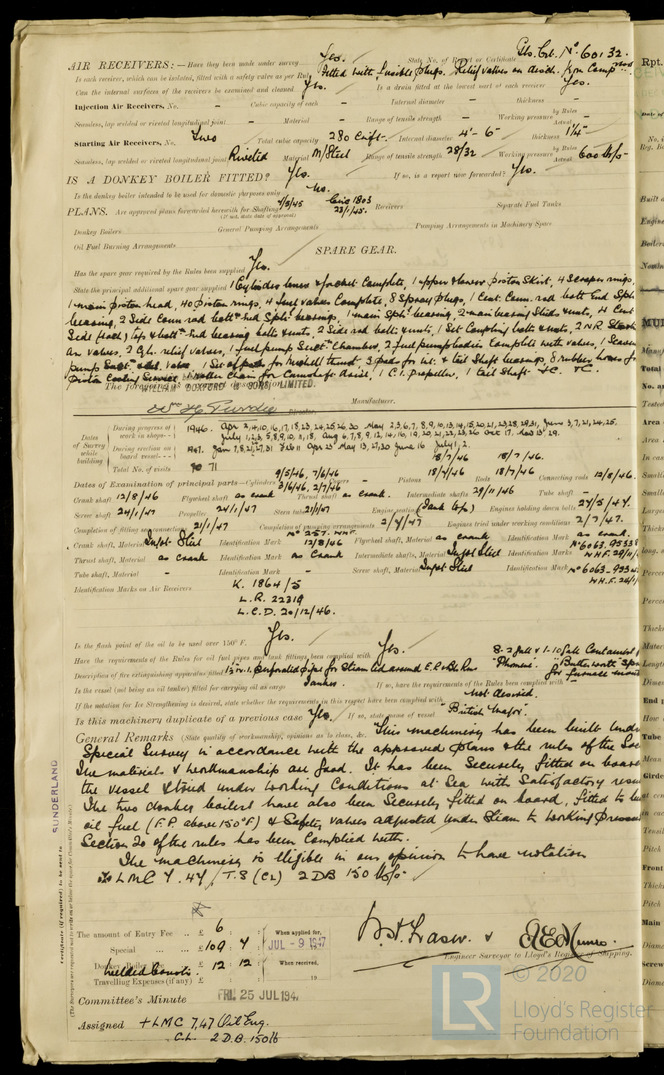 AIR RECEIVERS:—Have they been made under survey Yes. State No. of Report or Certificate Gls. Crt. No 60132.
Is each receiver, which can be isolated, fitted with a safety valve as per Rule Fitted with fusible plugs. Relief valves on disch. from Comp
Can the internal surfaces of the receivers be examined and cleaned Yes. Is a drain fitted at the lowest part of each receiver Yes.
Injection Air Receivers, No. – Cubic capacity of each – Internal diameter – thickness –
Seamless, lap welded or riveted longitudinal joint – Material – Range of tensile strength – Working pressure by Rules Actual –
Starting Air Receivers, No. Two Total cubic capacity 280 Cu.ft. Internal diameter 4'-6" thickness 1¼"
Seamless, lap welded or riveted longitudinal joint Riveted Material M/Steel Range of tensile strength 28/32 Working pressure by Rules Actual 600 lb/□"
IS A DONKEY BOILER FITTED? Yes. If so, is a report now forwarded? Yes.
Is the donkey boiler intended to be used for domestic purposes only No.
PLANS. Are approved plans forwarded herewith for Shafting Receivers 23/1/45. Separate Fuel Tanks
(If not, state date of approval)
Donkey Boilers General Pumping Arrangements Pumping Arrangements in Machinery Space
Oil Fuel Burning Arrangements
SPARE GEAR.
Has the spare gear required by the Rules been supplied Yes.
State the principal additional spare gear supplied 1 Cylinder liner & jacket Complete, 1 upper & lower piston skirt, 4 Scraper rings,
1 main piston head, 40 piston rings, 4 fuel valves Complete, 8 spray plugs, 1 Cent. Conn. rod bott. end Sph.
bearing, 2 Side Conn rod bott. end Sph. bearings, 1 main Sph. bearing, 2 main bearing studs & nuts, 4 Cent
Side (each) top & bottm end bearing bolts & nuts, 2 Side rod bolts & nuts, 1 Set Coupling bolts & nuts, 2 N.R.
Air valves, 2 Cyl. relief valves, 1 fuel pump Suctn Chamber, 2 fuel pump bodies Complete with valves,
pump 1 Set of pads for Michell thrust, 3 pads for int. & tail Shaft bearings, 8 rubber hoses for
Piston Cooling Service, roller Chain for Camshaft drive, 1 C.I. propeller, 1 tail Shaft &c. &c.
The foregoing is a correct description
WILLIAM DOXFORD & SONS LIMITED.
Wm H Purdie Director. Manufacturer.
Dates of Survey while building
During progress of work in shops - - 1946. Apr 2,4,10,16,17,18,23,24,25,26,30 May 2,3,6,7,8,9,10,13,14,15,20,21,23,28,29,31, June 3,7,21,24,25.
July 1,2,3,5,8,9,10,11,18, Aug 6,7,8,9,12,14,16,19,20,21,23,26 Oct 17. Nov 13, 29.
During erection on board vessel - - - 1947. Jan 7,8,21,27,31 Feb 11 Apr 23 May 13,27,30 June 16 July 1, 2.
Total No. of visits 71
Dates of Examination of principal parts—Cylinders 9/5/46, 7/6/46 3/6/46, 2/7/46 Covers – Pistons 18/7/46 18/7/46 Rods 18/7/46. 18/7/46 Connecting rods 12/8/46.
Crank shaft 12/8/46 Flywheel shaft as crank Thrust shaft as crank. Intermediate shafts 29/11/46 Tube shaft –
Screw shaft 24/1/47 Propeller 24/1/47 Stern tube 21/1/47 Engine seatings (Tank top) Engines holding down bolts 27/5/47.
Completion of fitting sea connections 21/1/47 Completion of pumping arrangements 2/7/47 Engines tried under working conditions 2/7/47.
Crank shaft, Material Ingot Steel Identification Mark No 257. WHF. 12/8/46 Flywheel shaft, Material as crank Identification Mark as crank.
Thrust shaft, Material as crank Identification Mark as Crank Intermediate shafts, Material Ingot Steel Identification Marks No 6063. WHF.
Tube shaft, Material – Identification Mark – Screw shaft, Material Ingot Steel Identification Mark No 6063. W.H.F. 24/1/
Identification Marks on Air Receivers K. 1864/5
L.R. 22319
L.C.D. 20/12/46.
Is the flash point of the oil to be used over 150° F. Yes.
Have the requirements of the Rules for oil fuel pipes and tank fittings been complied with Yes.
Description of fire extinguishing apparatus fitted perforated pipes for Steam led around E.R & Blr Rms "Phomene". for furnace
Is the vessel (not being an oil tanker) fitted for carrying oil as cargo Tanker. If so, have the requirements of the Rules been complied with
If the notation for Ice Strengthening is desired, state whether the requirements in this respect have been complied with Not desired.
Is this machinery duplicate of a previous case Yes. If so, state name of vessel "British Major".
General Remarks (State quality of workmanship, opinions as to class, &c. This machinery has been built under
Special Survey in accordance with the approved plans & the rules of the Soc
The materials & workmanship are good. It has been Securely fitted on board
the vessel & tried under working Conditions at Sea with Satisfactory resu
The two donkey boilers have also been Securely fitted on board, fitted to bu
oil fuel (F.P. above 150°F) & Safety valves adjusted under Steam to working pressure
Section 20 of the rules has been Complied with.
The machinery is eligible in our opinion to have notation
+LMC 7.47 / T.S (CL) 2 DB 150 lb/□"
SUNDERLAND
Certificate (if required) to be sent to
The amount of Entry Fee .. £ 6 : : When applied for,
Special ... £ 109 : 4 : JUL - 9 1947
Donkey Boiler Fee £ 12 : 12 : When received,
Travelling Expenses (if any) £ : : 19
Committee's Minute FRI. 25 JUL 194
Assigned +LMC 7,47 Oil Eng.
CL. 2 D.B. 150 lb
W.H. Fraser &
Engineer Surveyor to Lloyd's Register of Shipping.
© 2020
LR
Lloyd's Register
Foundation
Rpt.